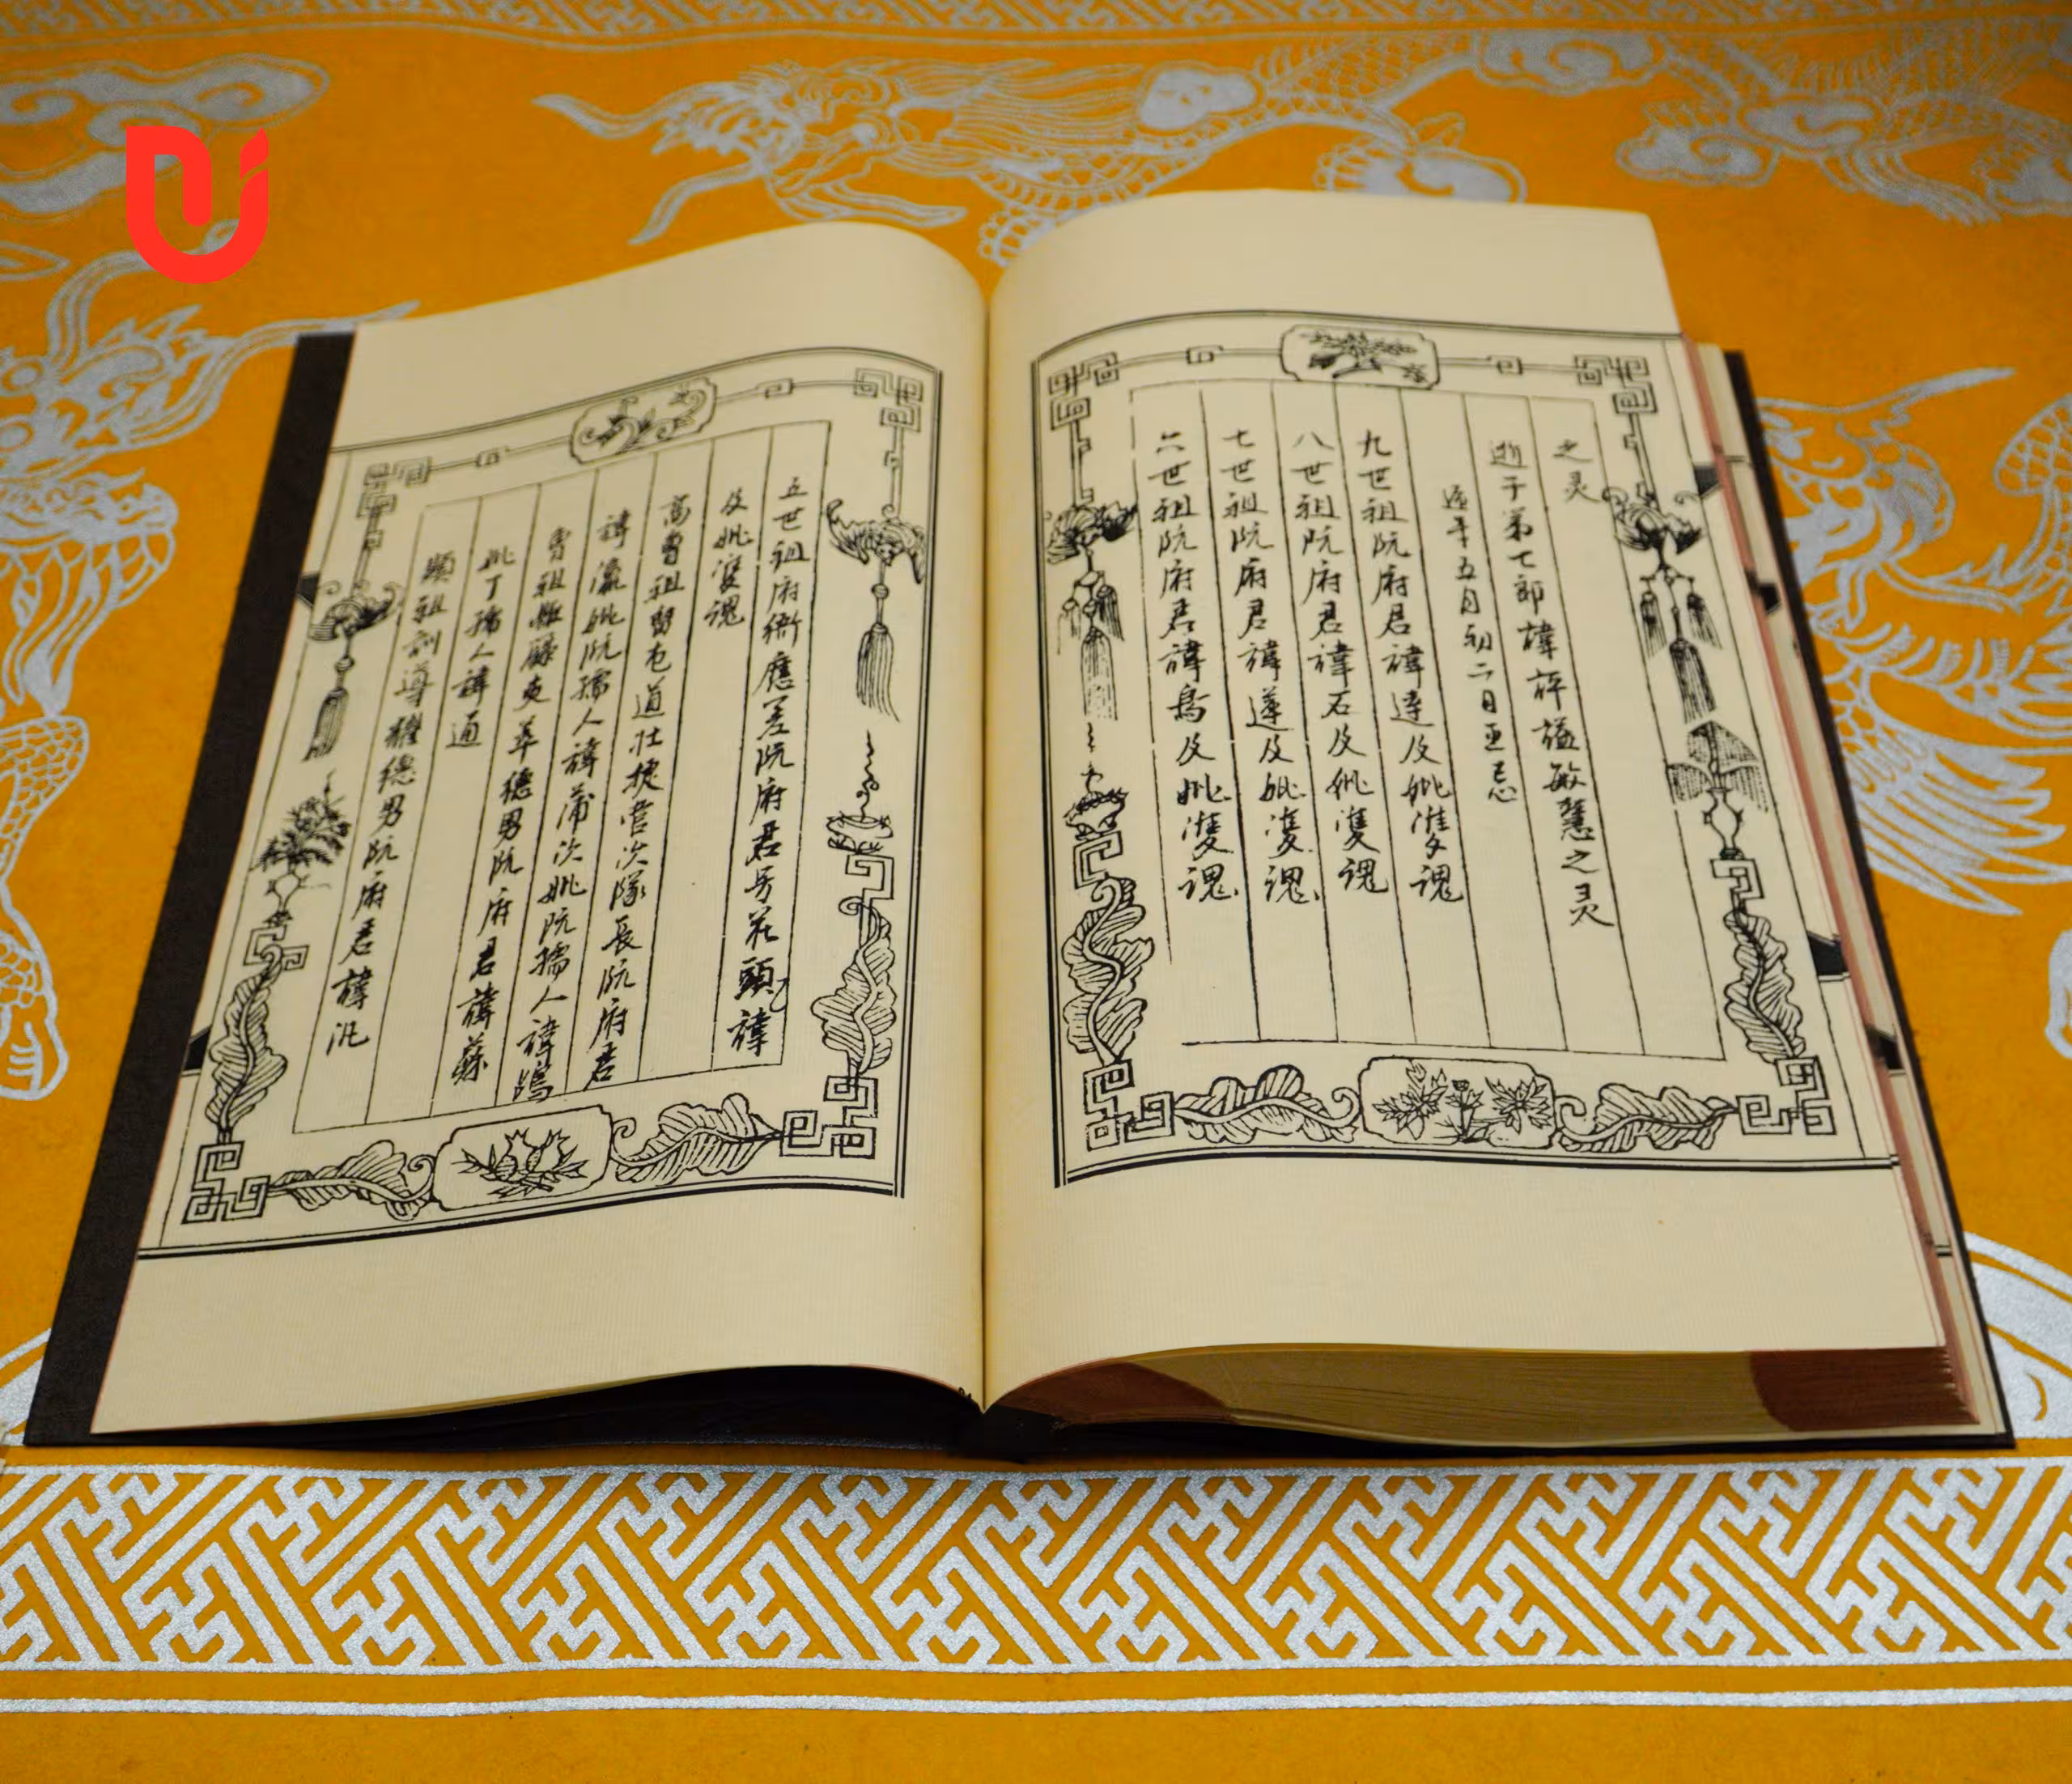 之灵
逝于弟七郎諱評謚敏慧之灵
遞年五月初二日正忌
九世祖阮府君諱達及妣雙魂
八世祖阮府君諱石及妣雙魂
七世祖阮府君諱遵及妣雙魂
六世祖阮府君諱及妣雙魂
五世祖府衙應差阮府君号花頭諱
及妣雙魂
高曾祖屯道壯捷營次隊長阮府君
諱瀛妣阮孺人諱蒲次妣阮孺人諱
曾祖德男阮府君諱蘇
妣丁孺人諱通
顯祖訓導德男阮府君諱汎